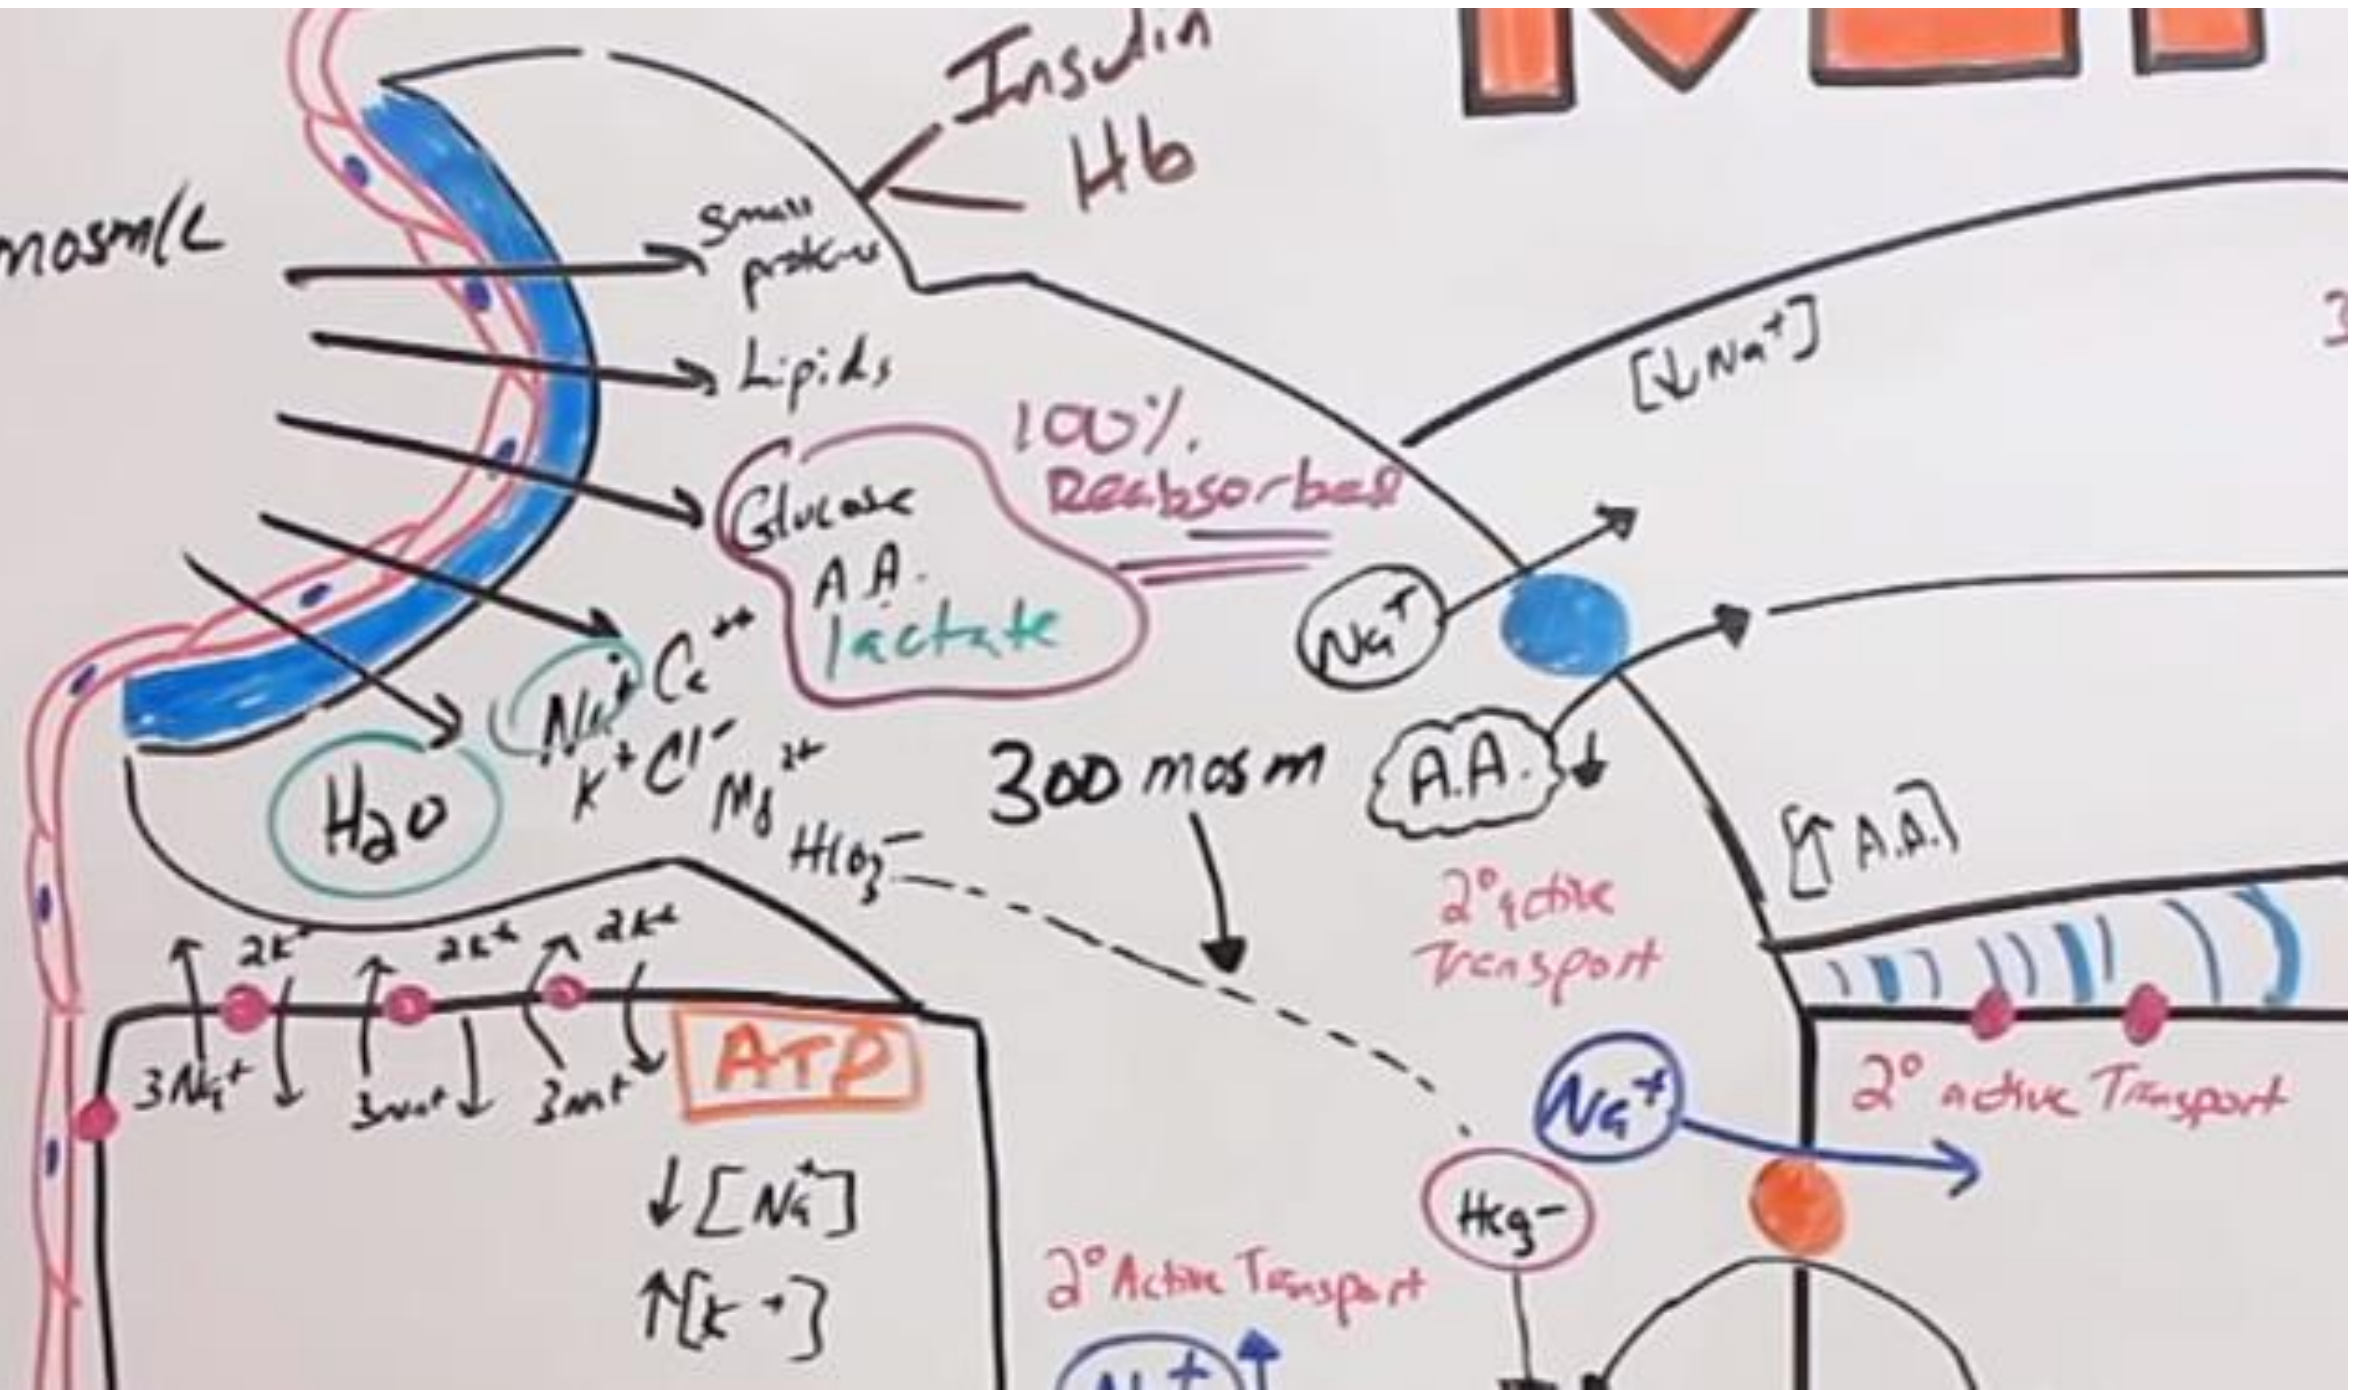 Insulin
Hb
mosm/L
Small
proteins
Lipids
[↓Na⁺]
3
100%
Reabsorbed
Glucose
A.A.
lactate
Na⁺ Ca⁺⁺
K⁺ Cl⁻
Mg²⁺
HCO₃⁻
H₂O
Na⁺
300 mosm
A.A. ↓
[↑ A.A.]
2° active
Transport
2K⁺ 2K⁺ 2K⁺
3Na⁺ 3Na⁺ 3Na⁺
ATP
Na⁺
2° active Transport
↓ [Na⁺]
↑ [K⁺]
HCO₃⁻
2° Active Transport
Na⁺